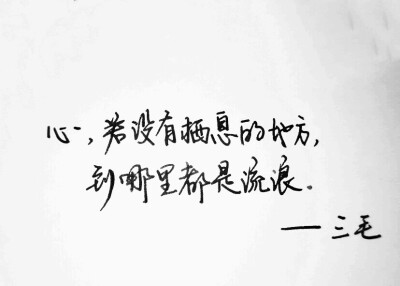 心,若没有栖息的地方,
到哪里都是流浪。
——三毛